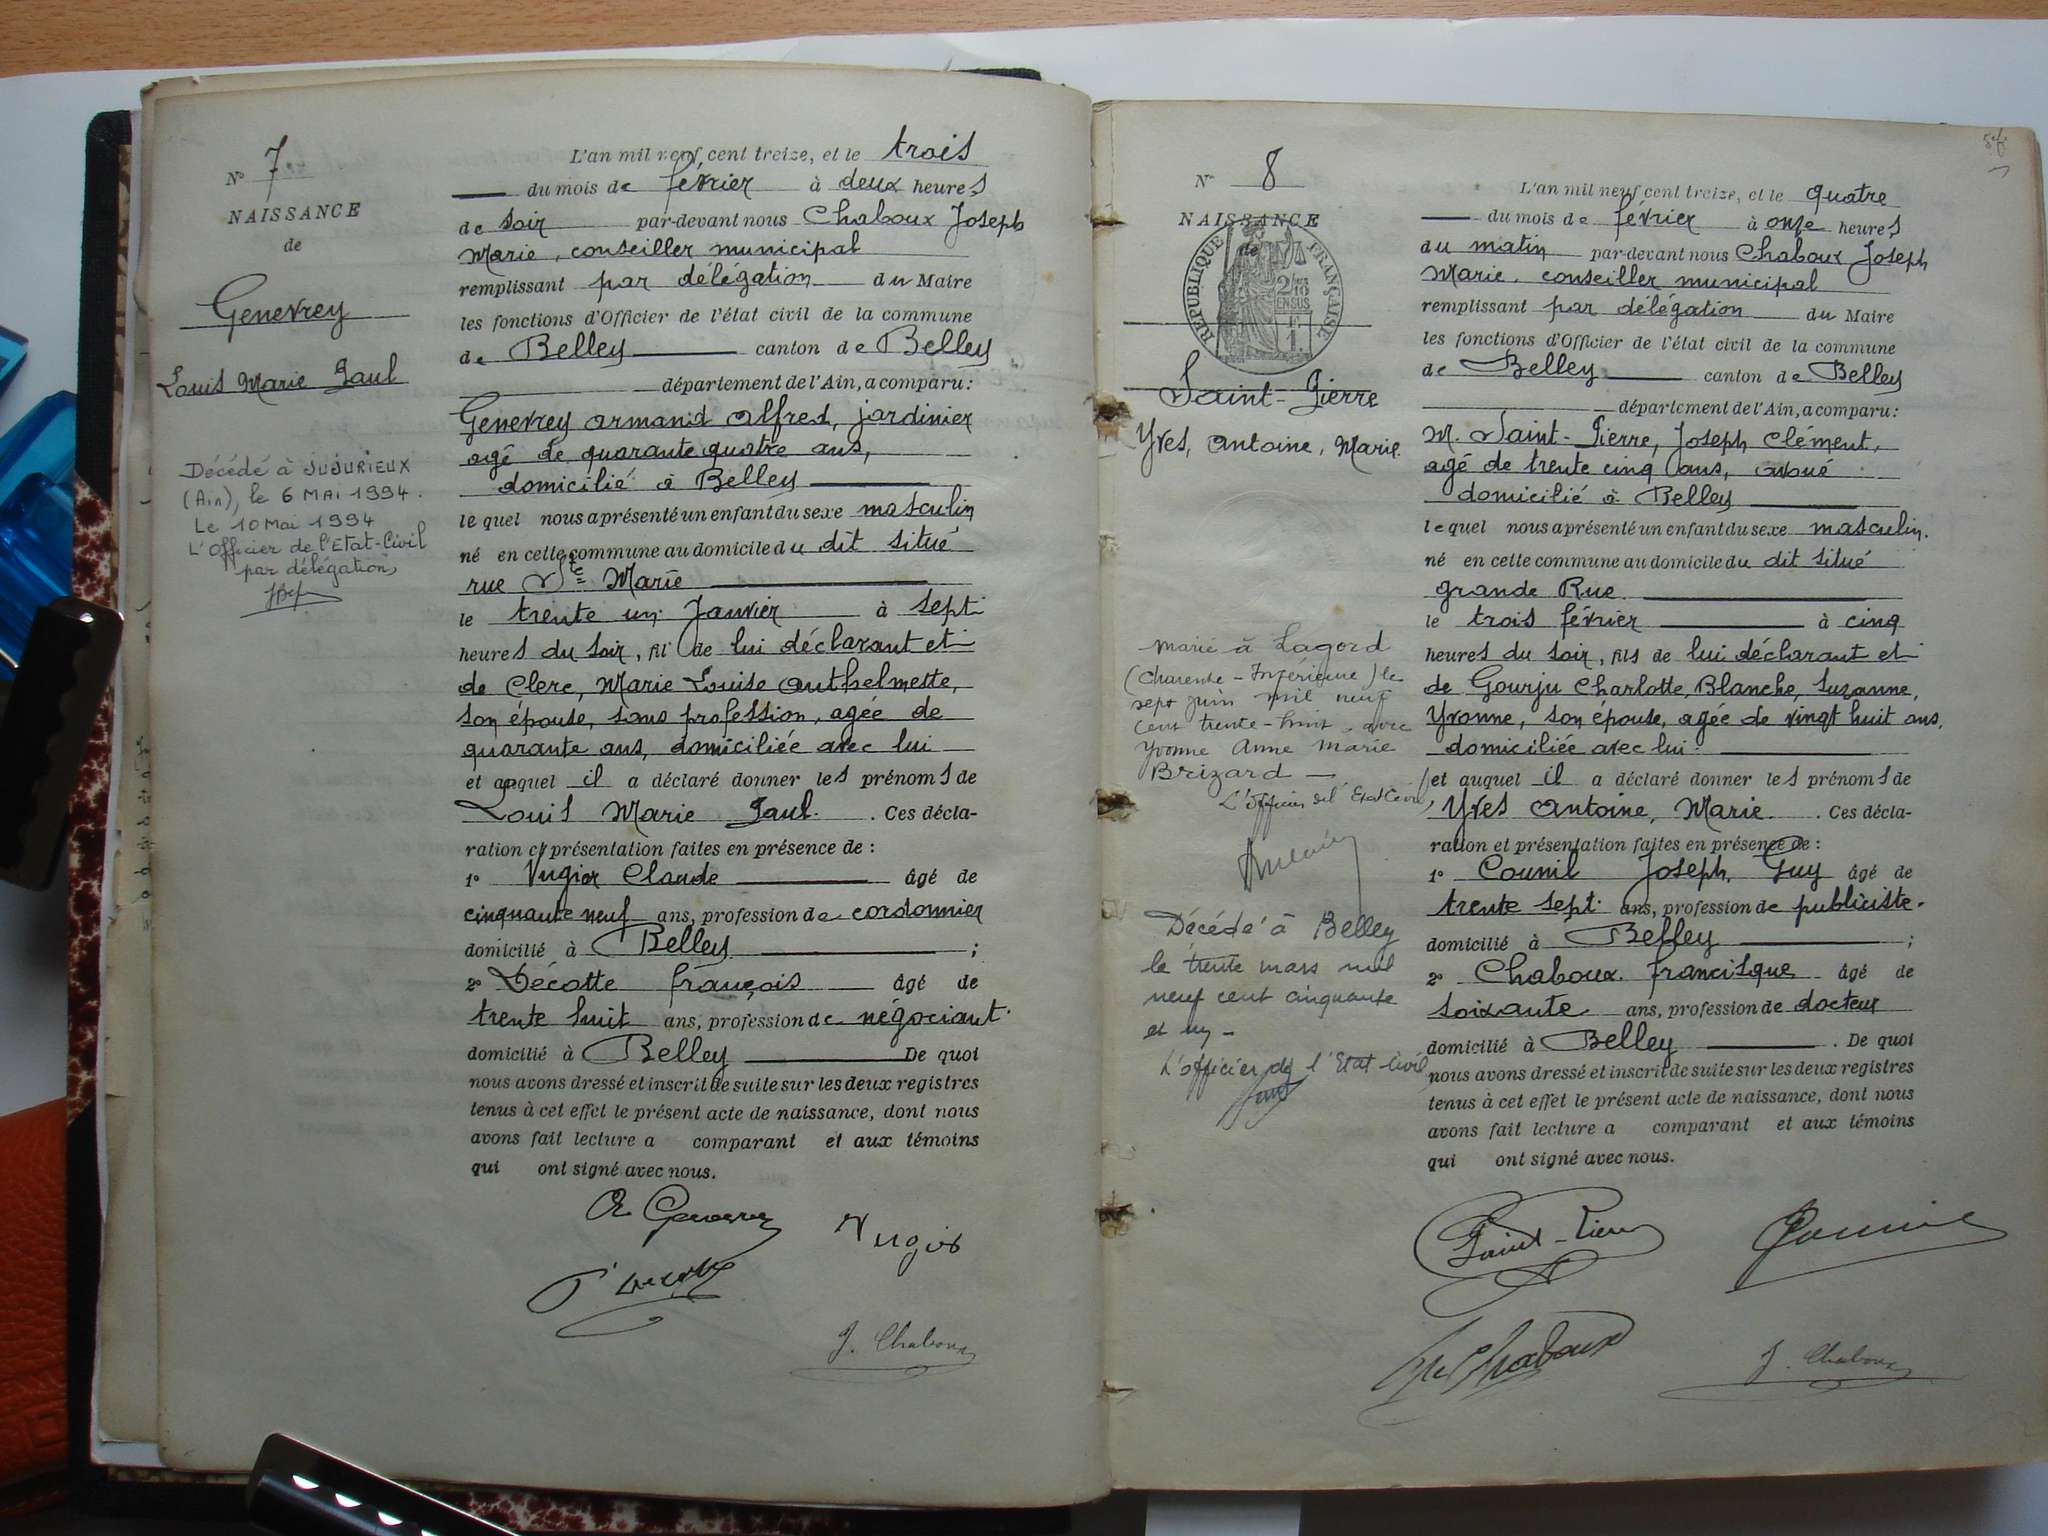 N° 7
NAISSANCE
de
Genevrey
Louis Marie Paul
Décédé à JUJURIEUX
(Ain), le 6 MAI 1994.
Le 10 Mai 1994
L'Officier de l'Etat-Civil
par délégation,
L'an mil neuf cent treize, et le trois
du mois de février à deux heures
de soir par-devant nous Chaboux Joseph
Marie, conseiller municipal
remplissant par délégation du Maire
les fonctions d'Officier de l'état civil de la commune
de Belley canton de Belley
département de l'Ain, a comparu :
Genevrey Armand Alfred, jardinier
agé de quarante quatre ans,
domicilié à Belley
lequel nous a présenté un enfant du sexe masculin
né en cette commune au domicile du dit situé
rue Ste Marie
le trente un Janvier à sept
heures du soir, fil de lui déclarant et
de Clerc, Marie Louise Anthelmette,
son épouse, sans profession, agée de
quarante ans, domiciliée avec lui
et auquel il a déclaré donner les prénoms de
Louis Marie Paul. . Ces décla-
ration et présentation faites en présence de :
1° Vugier Claude âgé de
cinquante neuf ans, profession de cordonnier
domicilié à Belley ;
2° Décotte françois âgé de
trente huit ans, profession de négociant
domicilié à Belley De quoi
nous avons dressé et inscrit de suite sur les deux registres
tenus à cet effet le présent acte de naissance, dont nous
avons fait lecture a comparant et aux témoins
qui ont signé avec nous.
J. Chaboux
N° 8
NAISSANCE
de
RÉPUBLIQUE FRANÇAISE
2/10
EN SUS
F
1.
Saint-Pierre
Yves, Antoine, Marie.
Marié à Lagord
(Charente-Inférieure) le
sept juin mil neuf
cent trente-huit avec
Yvonne Anne Marie
Brizard
L'officier de l'Etat Civil,
Décédé à Belley
le trente mars mil
neuf cent cinquante
et un
L'officier de l'Etat Civil
L'an mil neuf cent treize, et le quatre
du mois de février à onze heures
du matin par-devant nous Chaboux Joseph
Marie, conseiller municipal
remplissant par délégation du Maire
les fonctions d'Officier de l'état civil de la commune
de Belley canton de Belley
département de l'Ain, a comparu :
M. Saint-Pierre, Joseph Clément,
agé de trente cinq ans, avoué
domicilié à Belley
lequel nous a présenté un enfant du sexe masculin.
né en cette commune au domicile du dit situé
grande Rue.
le trois février à cinq
heures du soir, fils de lui déclarant et
de Gourju Charlotte, Blanche, Suzanne,
Yvonne, son épouse, agée de vingt huit ans,
domiciliée avec lui.
et auquel il a déclaré donner les prénoms de
Yves Antoine, Marie. . Ces décla-
ration et présentation faites en présence de :
1° Counil Joseph, Guy âgé de
trente sept ans, profession de publiciste.
domicilié à Belley ;
2° Chaboux francisque âgé de
soixante ans, profession de docteur
domicilié à Belley . De quoi
nous avons dressé et inscrit de suite sur les deux registres
tenus à cet effet le présent acte de naissance, dont nous
avons fait lecture a comparant et aux témoins
qui ont signé avec nous.
Saint-Pierre
Chaboux
J. Chaboux